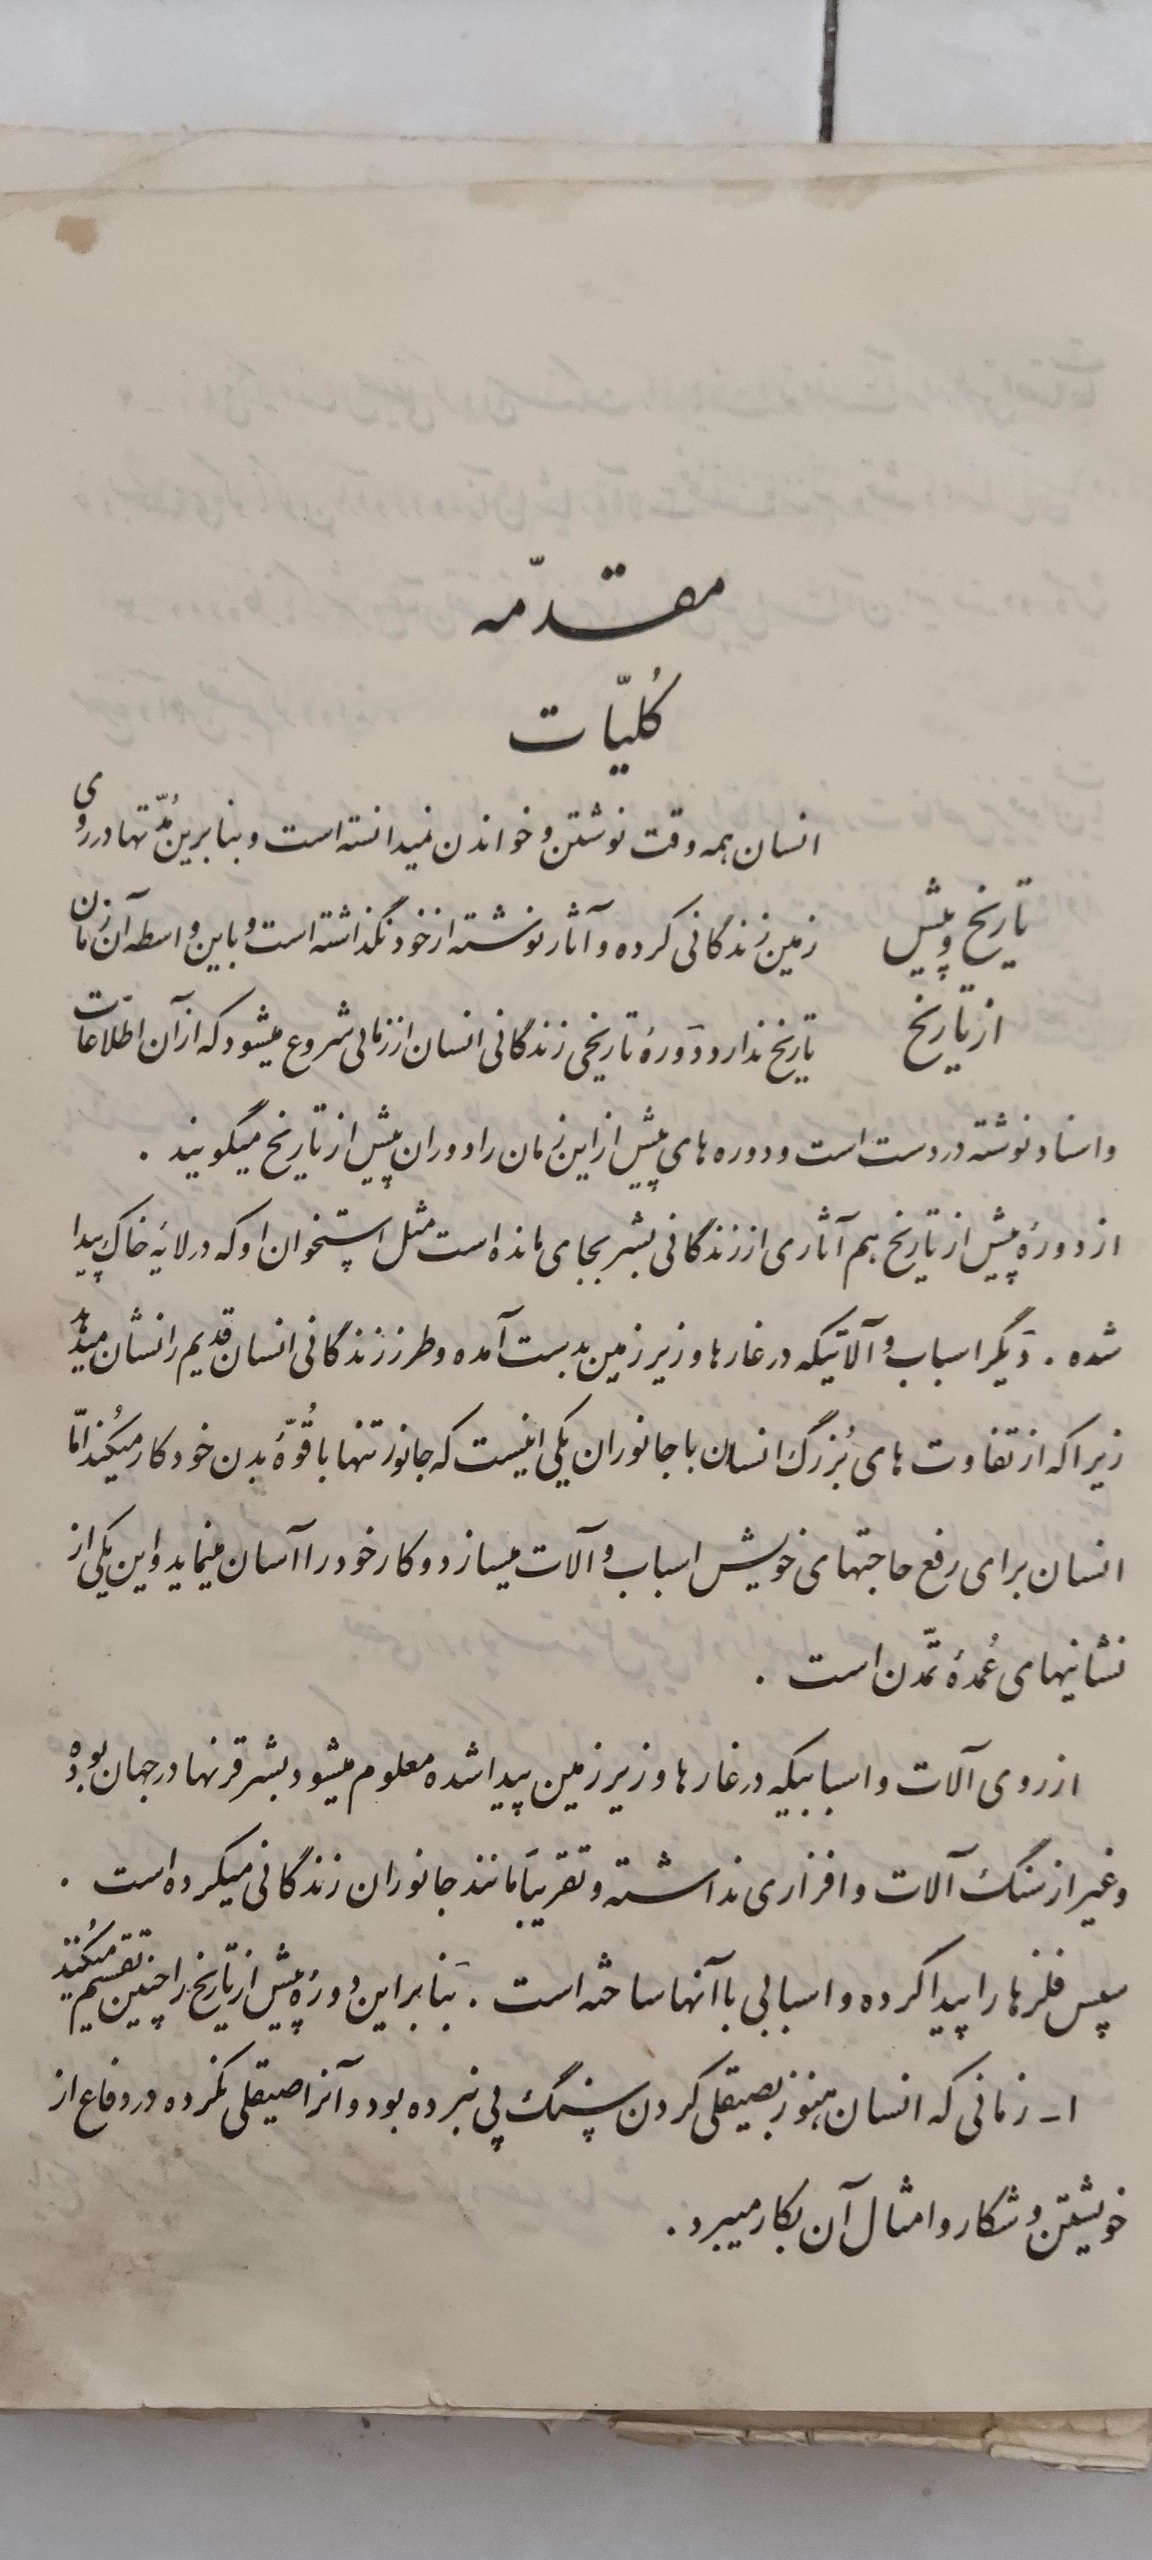 مقدّمه
کُلیّات
انسان همه وقت نوشتن و خواندن نمیدانسته است و بنابرین مُدّتها در روی
تاریخ و پیش
زمین زندگانی کرده و آثار نوشته از خود نگذاشته است و باین واسطه آن زمان
از تاریخ
تاریخ ندارد دَورهٔ تاریخی زندگانی انسان از زمانی شروع میشود که از آن اطّلاعات
و اسناد نوشته در دست است و دوره های پیش از این زمان را دوران پیش از تاریخ میگویند .
از دورهٔ پیش از تاریخ هم آثاری از زندگانی بشر بجای مانده است مثل استخوان او که در لایهٔ خاک پیدا
شده . دَیگر اسباب و آلاتیکه در غارها و زیر زمین بدست آمده و طرز زندگانی انسان قدیم را نشان میدهد
زیرا که از تفاوت های بُزرگ انسان با جانوران یکی اینست که جانور تنها با قُوّهٔ بدن خود کار میکُند امّا
انسان برای رفع حاجتهای خویش اسباب و آلات میسازد و کار خود را آسان مینماید و این یکی از
نشانیهای عُمدهٔ تمّدن است .
از روی آلات و اسبابیکه در غارها و زیر زمین پیدا شده معلوم میشود بشر قرنها در جهان بوده
و غیر از سنگ آلات و افزاری نداشته و تقریباً مانند جانوران زندگانی میکرده است .
سپس فلزها را پیدا کرده و اسبابی با آنها ساخته است . بَنابراین دورهٔ پیش از تاریخ را چنین تقسیم میکُنند
۱ـ زمانی که انسان هنوز بصیقلی کردن سنگ پی نبرده بود و آنرا صیقلی نکرده در دفاع از
خویشتن و شکار و امثال آن بکار میبرد .